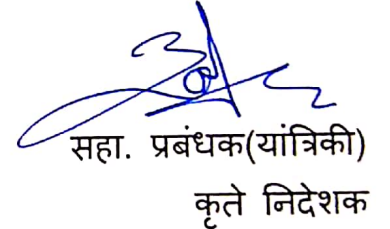 सहा. प्रबंधक(यांत्रिकी)
कृते निदेशक